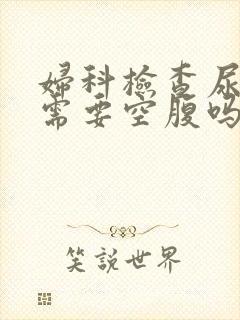 婦科檢查尿
需要空腹吗
笑說世界